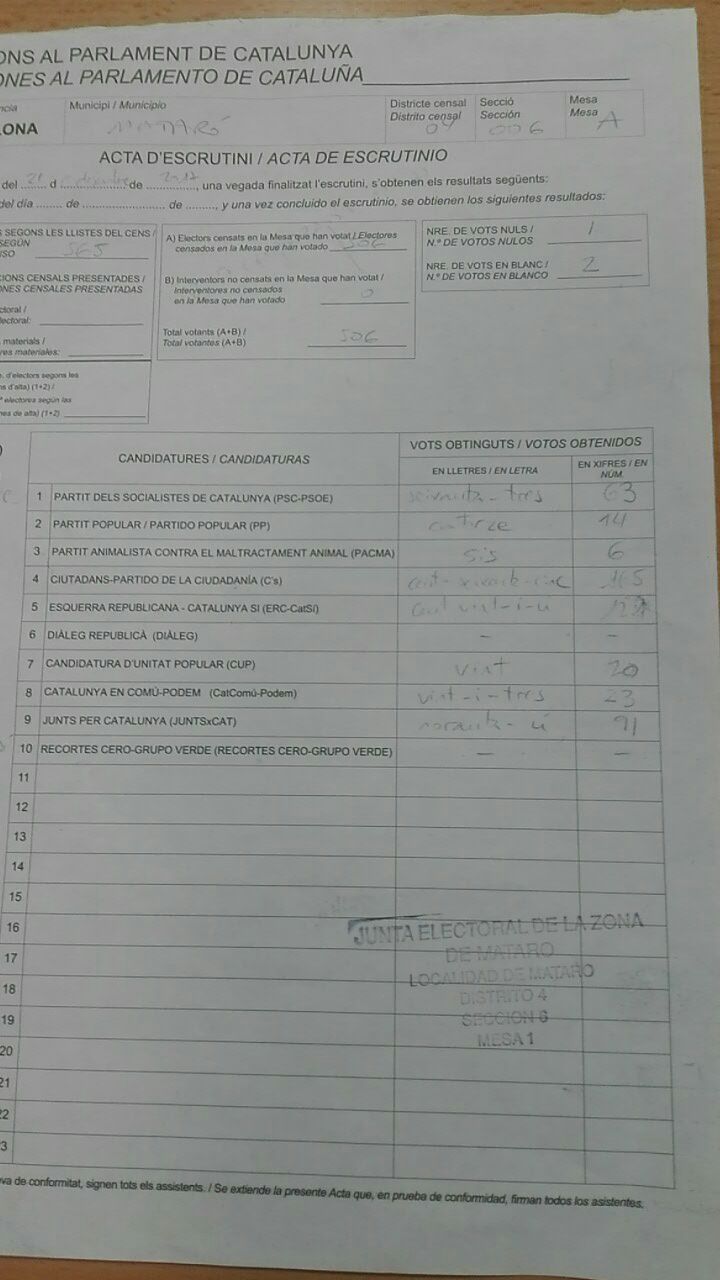 ONS AL PARLAMENT DE CATALUNYA
ONES AL PARLAMENTO DE CATALUÑA
ncia
ONA
Municipi / Municipio
MATARÓ
Districte censal
Distrito censal
04
Secció
Sección
006
Mesa
Mesa
A
ACTA D'ESCRUTINI / ACTA DE ESCRUTINIO
del 21 d de 2017, una vegada finalitzat l'escrutini, s'obtenen els resultats següents:
del día ........ de ........................ de ........, y una vez concluido el escrutinio, se obtienen los siguientes resultados:
S SEGONS LES LLISTES DEL CENS /
SEGÚN
ISO 565
CIONS CENSALS PRESENTADES /
ONES CENSALES PRESENTADAS
ctoral /
lectoral:
materials /
res materiales:
. d'electors segons les
s d'alta) (1+2) /
º electores según las
nes de alta) (1+2)
A) Electors censats en la Mesa que han votat / Electores
censados en la Mesa que han votado 506
B) Interventors no censats en la Mesa que han votat /
Interventores no censados
en la Mesa que han votado 0
Total votants (A+B) /
Total votantes (A+B) 506
NRE. DE VOTS NULS /
N.º DE VOTOS NULOS 1
NRE. DE VOTS EN BLANC /
N.º DE VOTOS EN BLANCO 2
CANDIDATURES / CANDIDATURAS
VOTS OBTINGUTS / VOTOS OBTENIDOS
EN LLETRES / EN LETRA
EN XIFRES / EN
NÚM.
1 PARTIT DELS SOCIALISTES DE CATALUNYA (PSC-PSOE) seixanta-tres 63
2 PARTIT POPULAR / PARTIDO POPULAR (PP) catorze 14
3 PARTIT ANIMALISTA CONTRA EL MALTRACTAMENT ANIMAL (PACMA) sis 6
4 CIUTADANS-PARTIDO DE LA CIUDADANÍA (C's) cent-xixanta-cinc 165
5 ESQUERRA REPUBLICANA - CATALUNYA SÍ (ERC-CatSí) cent vint-i-u 121
6 DIÀLEG REPUBLICÀ (DIÀLEG) – –
7 CANDIDATURA D'UNITAT POPULAR (CUP) vint 20
8 CATALUNYA EN COMÚ-PODEM (CatComú-Podem) vint-i-tres 23
9 JUNTS PER CATALUNYA (JUNTSxCAT) noranta-ú 91
10 RECORTES CERO-GRUPO VERDE (RECORTES CERO-GRUPO VERDE) – –
11
12
13
14
15
16
17
18
19
20
21
22
3
JUNTA ELECTORAL DE LA ZONA
DE MATARO
LOCALIDAD DE MATARO
DISTRITO 4
SECCION 6
MESA 1
va de conformitat, signen tots els assistents. / Se extiende la presente Acta que, en prueba de conformidad, firman todos los asistentes.